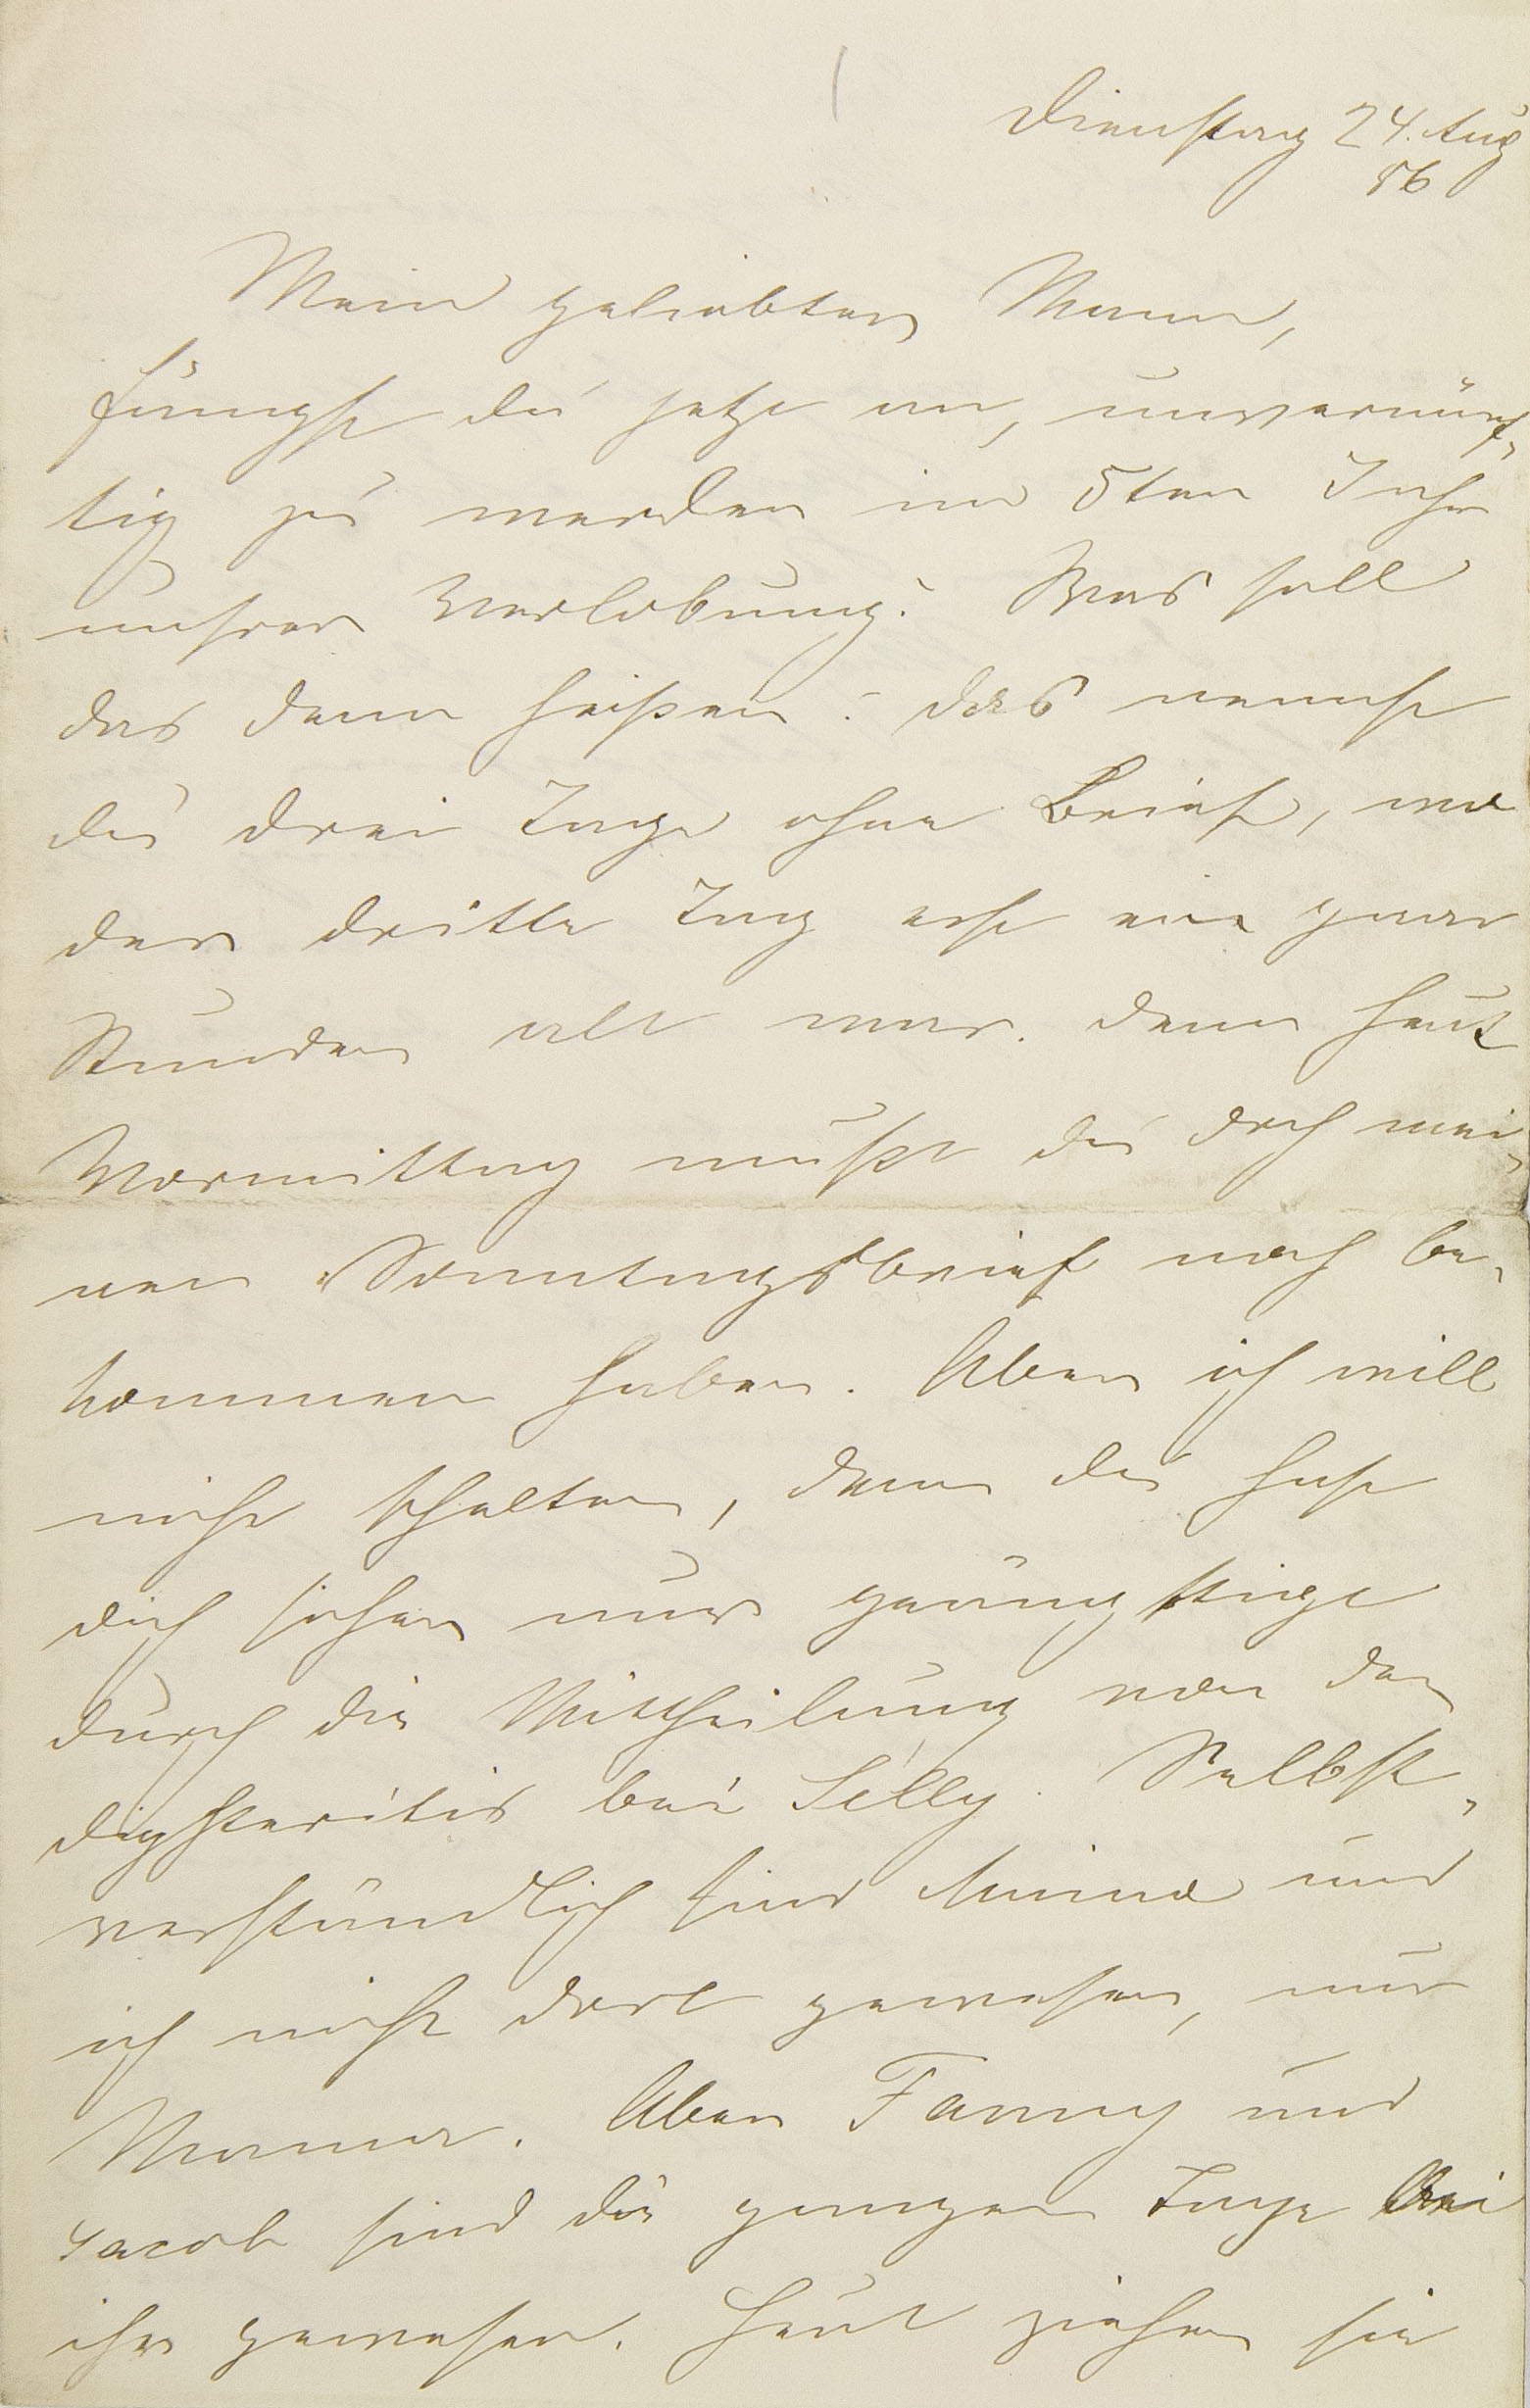 Dienstag 24. Aug
86
Mein geliebter Mann,
fängst du jetzt an, unvernünf-
tig zu werden im 5ten Jahr
unsrer Verlobung? Was soll
das denn heißen? das nennst
du drei Tage ohne Brief, wo
der dritte Tag erst ein paar
Stunden alt war. denn heut
Vormittag mußt du doch mei-
nen Sonntagsbrief noch be-
kommen haben. Aber ich will
nicht schelten, denn du hast
dich sicher nur geängstigt
durch die Mittheilung von der
diphteritis bei Lilly. Selbst-
verständlich sind Minna und
ich nicht dort gewesen, nur
Mama. Aber Fanny und
Jacob sind die ganzen Tage bei
ihr gewesen. Heut ziehen sie